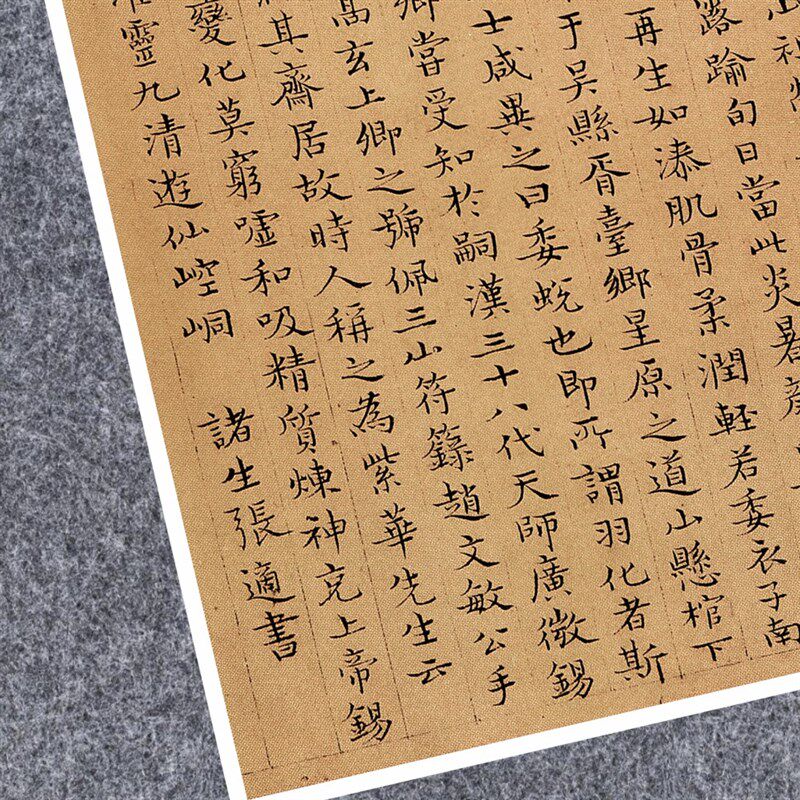 露踰旬日當此炎暑
再生如漆肌骨柔潤軽若委衣子南
于吳縣胥臺鄉星原之道山懸棺下
士咸異之曰委蛻也即所謂羽化者斯
卿嘗受知於嗣漢三十八代天師廣微錫
高玄上卿之號佩三山符籙趙文敏公手
其齋居故時人稱之為紫華先生云
變化莫窮噓和吸精質煉神完上帝錫
靈九清遊仙崆峒 諸生張適書